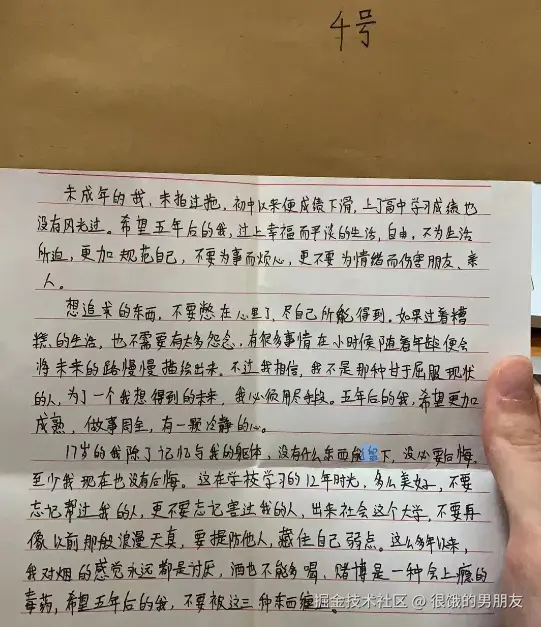 4号
未成年的我,未拍过拖,初中以来便成绩下滑,上了高中学习成绩也
没有风光过。希望五年后的我,过上幸福而平淡的生活,自由,不为生活
所迫,更加规范自己,不要为事而烦心,更不要为情绪而伤害朋友、亲
人。
想追求的东西,不要憋在心里了,尽自己所能得到。如果过着糟
糕的生活,也不需要有太多怨念,有很多事情在小时候随着年龄便会
将未来的路慢慢描绘出来。不过我相信,我不是那种甘于屈服现状
的人,为了一个我想得到的未来,我必须用尽手段。五年后的我,希望更加
成熟,做事周全,有一颗冷静的心。
17岁的我除了记忆与我的躯体,没有什么东西能留下,没必要后悔,
至少我现在也没有后悔。这在学校学习的12年时光,多么美好,不要
忘记帮过我的人,更不要忘记害过我的人,出来社会这个大学,不要再
像以前那般浪漫天真,要提防他人,藏住自己弱点。这么多年以来,
我对烟的感觉永远都是讨厌,酒也不能多喝,赌博是一种会上瘾的
毒药,希望五年后的我,不要被这三种东西缠
掘金技术社区 @ 很饿的男朋友